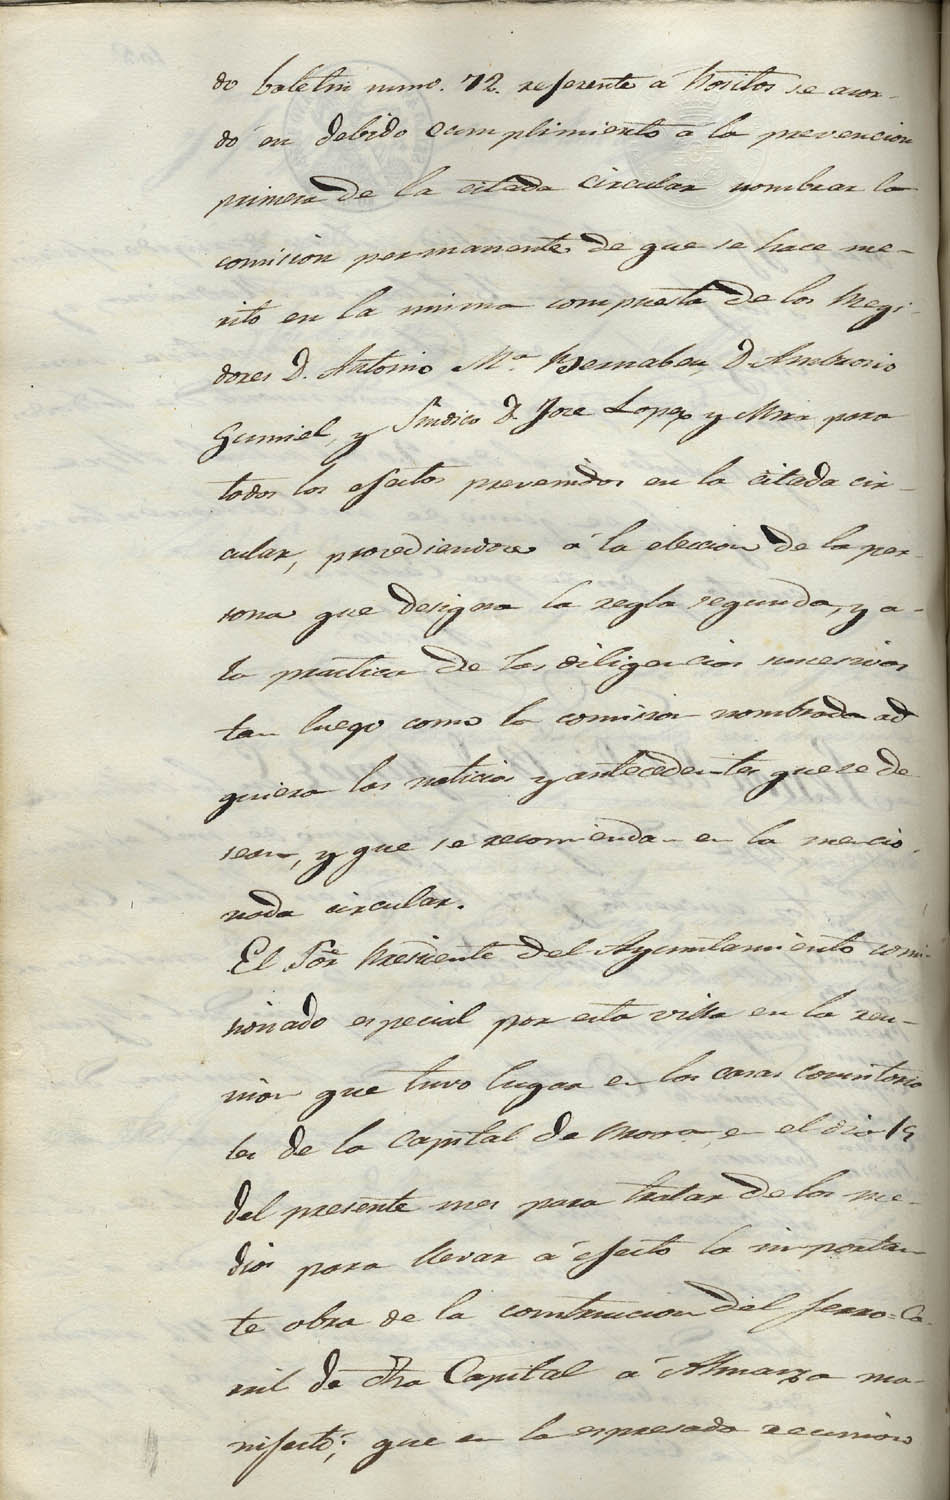 do boletin num.º 72. referente à Positos se acor-
dó en debido cumplimiento à la prevencion
primera de la citada circular nombrar la
comision permanente de que se hace me-
rito en la misma compuesta de los Regi-
dores D. Antonio M.ª Bernabeu, D. Ambrosio
Gumiel, y Sindico D. Jose Lopez y Mira para
todos los efectos prevenidos en la citada cir-
cular, procediendose à la eleccion de la per-
sona que designa la regla segunda, y a
la practica de las diligencias necesarias
tan luego como la comision nombrada ad
quiera las noticias y antecedentes que se de
sean, y que se recomiendan en la mencio-
nada circular.
El Sōr Presidente del Ayuntamiento comi-
sionado especial por esta villa en la reu-
nion que tuvo lugar en las casas consistoria
les de la Capital de en el dia 15
del presente mes para tratar de los me-
dios para llevar à efecto la importan-
te obra de la construccion del ferro=ca-
rril de dha Capital à Almanza ma-
nifestó; que en la espresada reunion